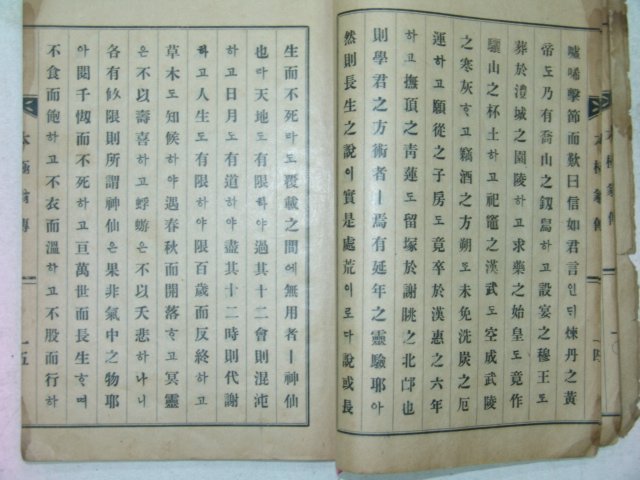 噓唏擊節而歎曰信如君言인뒤煉丹之黃
帝도乃有喬山之釰舃하고設宴之穆王도
葬於澧城之園陵하고求藥之始皇도竟作
驪山之杯土하고祀竈之漢武도空成武陵
之寒灰하고竊酒之方朔도未免洗炭之厄
運하고願從之子房도竟卒於漢惠之六年
하고撫頂之靑蓮도留塚於謝眺之北邙也
則學君之方術者ㅣ焉有延年之靈驗耶아
然則長生之說이實是處荒이로다說或長
生而不死라도覆載之間에無用者ㅣ神仙
也마天地도有限하야過其十二會則混沌
하고日月도有道하야盡其十二時則代謝
하고人生도有限하야限百歲而反終하고
草木도知候하야遇春秋而開落하고冥靈
은不以壽喜하고蜉蝣은不以夭悲하나니
各有攸限則所謂神仙은果非氣中之物耶
아閱千劫而不死하고亘萬世而長生하며
不食而飽하고不衣而溫하고不股而行하
一五